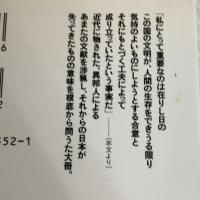 「私にとって重要なのは在りし日の
この国の文明が、人間の生存をできうる限り
気持のよいものにしようとする合意と
それにもとづく工夫によって
成り立っていたという事実だ」
――(本文より)
近代に物された、異邦人による
あまたの文献を渉猟し、それからの日本が
失ってきたものの意味を根底から問うた大冊。
6
2
52-1